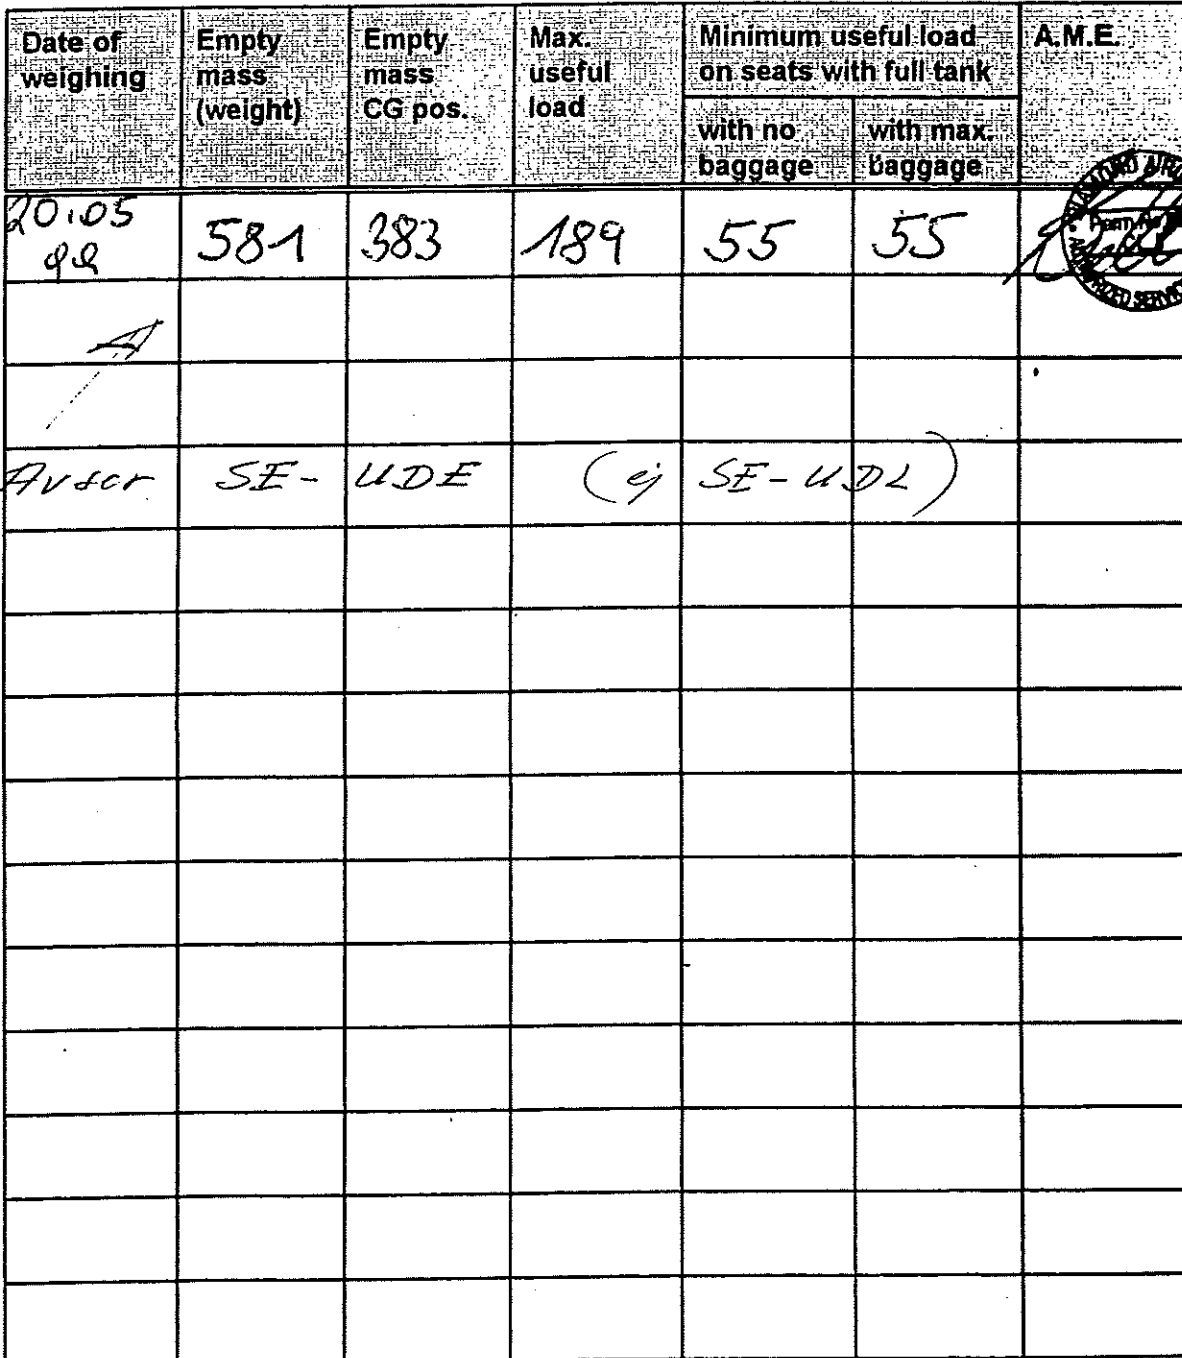 Date of weighing
Empty mass (weight)
Empty mass CG pos.
Max. useful load
Minimum useful load on seats with full tank
with no baggage
with max. baggage
A.M.E.
20.05 99 581 383 189 55 55
Avser SE-UDE (ej SE-UDL)